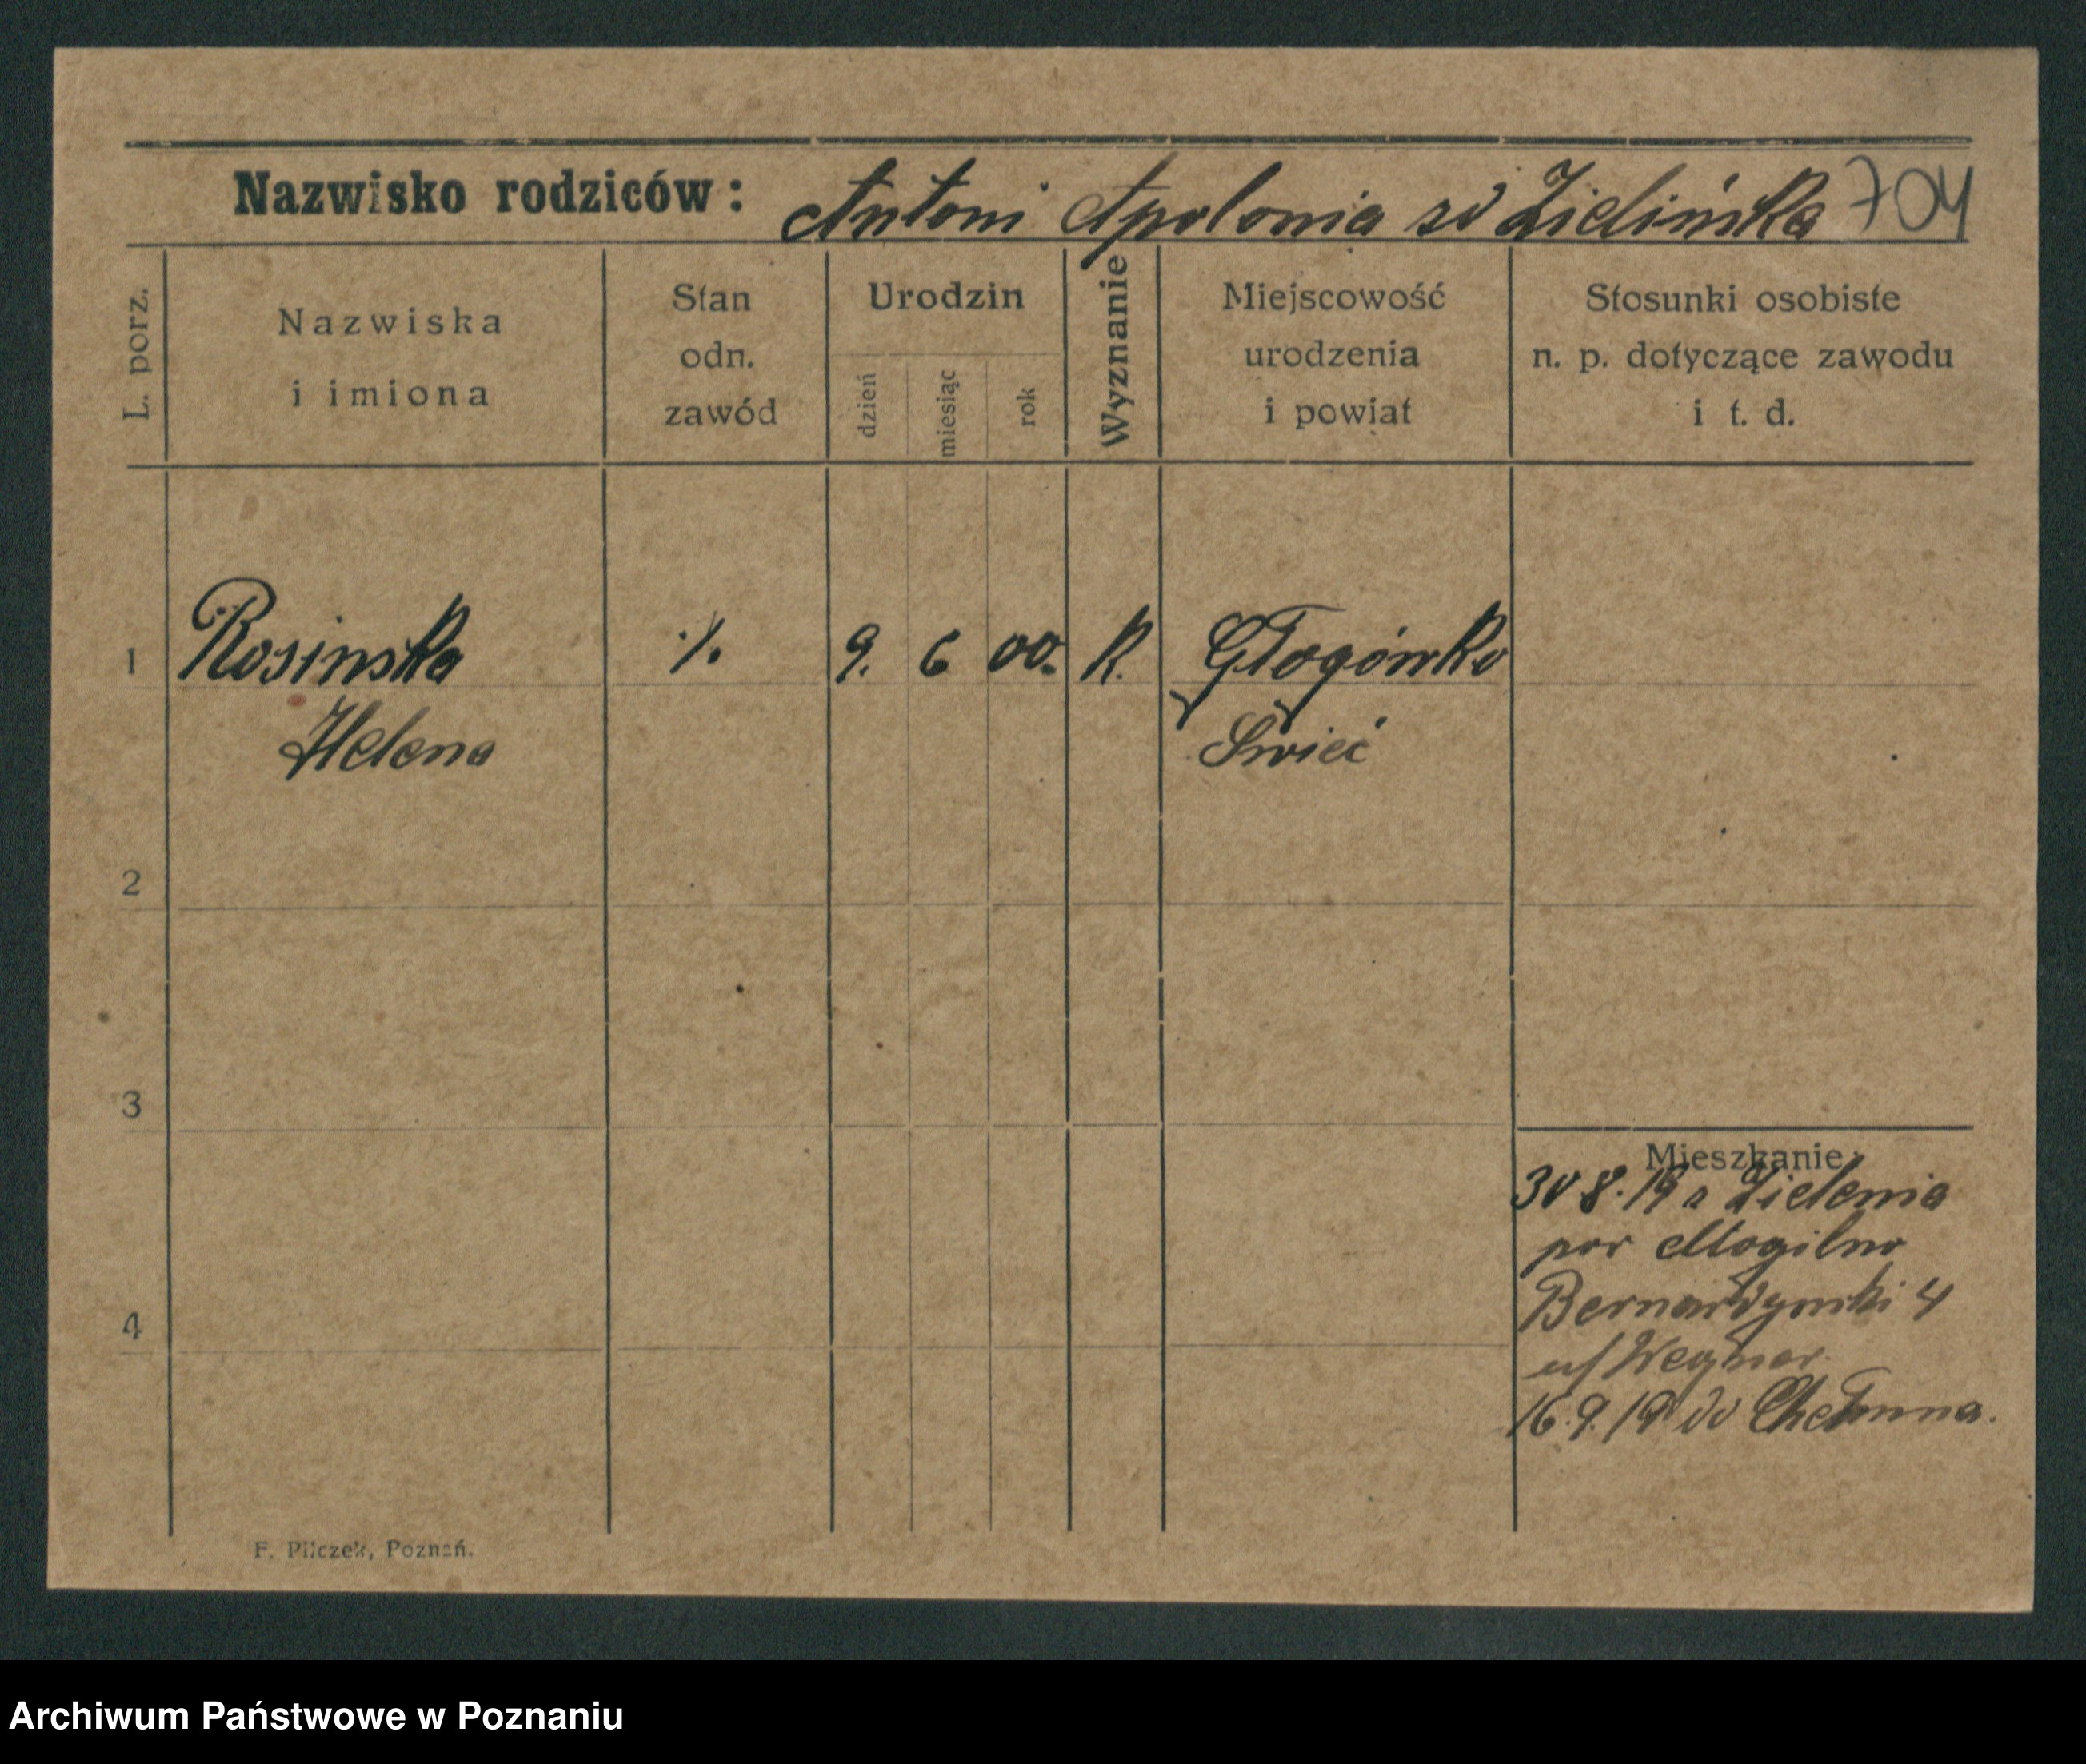 Nazwisko rodziców: Antoni Apolonia zd Zielińska 704
L. porz.
Nazwiska i imiona
Stan odn. zawód
Urodzin
dzień
miesiąc
rok
Wyznanie
Miejscowość urodzenia i powiat
Stosunki osobiste n. p. dotyczące zawodu i t. d.
1 Rosinska ·/. 9. 6 00. K. Głogówko
Helena Swieć
2
3
4
Mieszkanie:
30 8. 19 z Zielenia
pow Mogilno
Bernardynski 4
u/ Wegner.
16.9.19 do Chełmna.
F. Pilczek, Poznań.
Archiwum Państwowe w Poznaniu